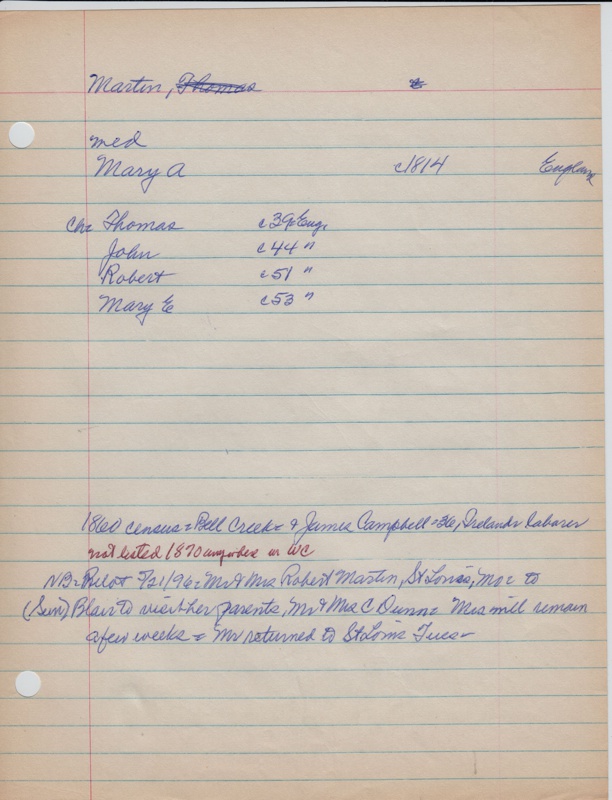 Martin, Thomas
med
Mary A c1814 England
ch= Thomas c39 Eng.
John c44 "
Robert c51 "
Mary E c53 "
1860 census = Bell Creek = & James Campbell = 36, Ireland = laborer
not listed 1870 anywhere in WC
NB = Pilot 5/21/96 = Mr & Mrs Robert Martin, St Louis, Mo = to
(Sun) Blair to visit her parents, Mr & Mrs C Dunn = Mrs will remain
a few weeks = Mr returned to St Louis Tues =